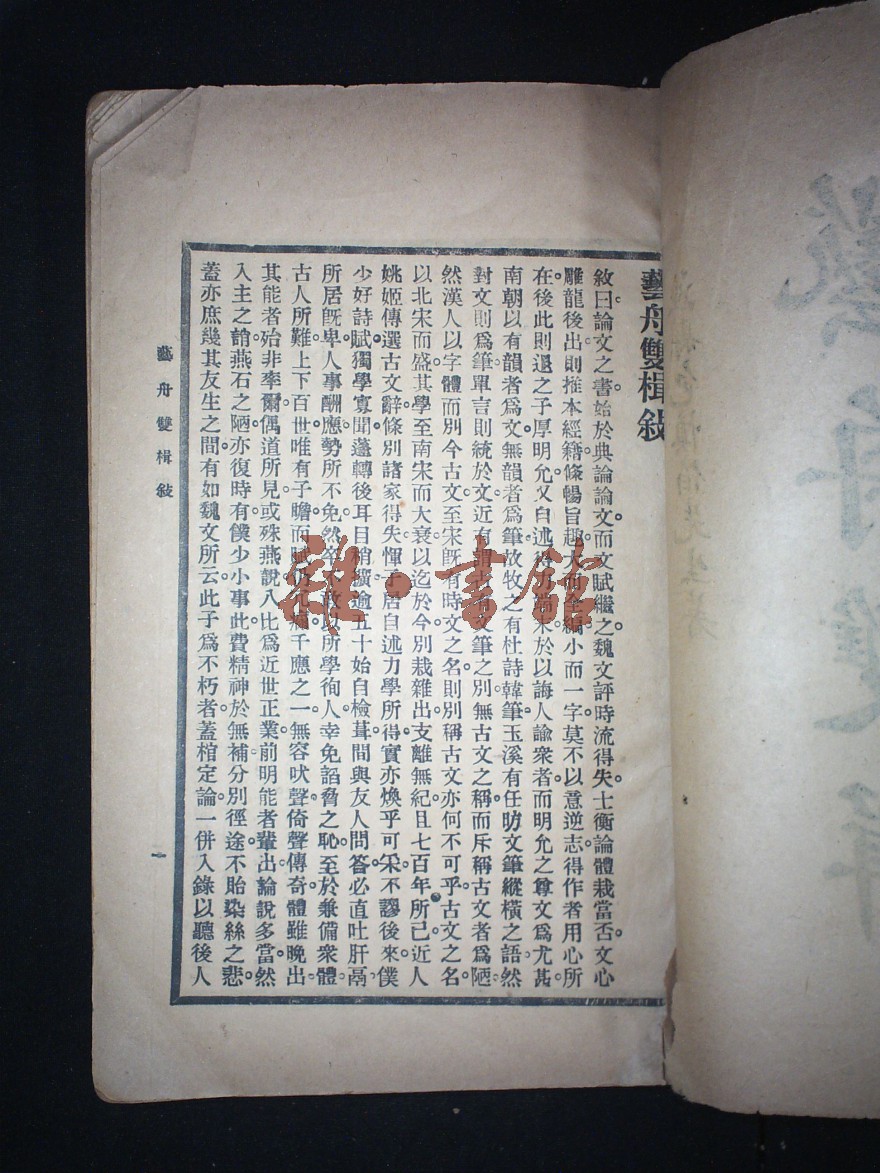 藝舟雙楫敍
敘曰論文之書始於典論論文而文賦繼之魏文評時流得失士衡論體栽當否文心
雕龍後出則推本經籍條暢旨趣大而全編小而一字莫不以意逆志得作者用心所
在後此則退之子厚明允父自述得力端末於以誨人諭衆者而明允之尊文爲尤甚
南朝以有韻者爲文無韻者爲筆故牧之有杜詩韓筆玉溪有任昉文筆縱橫之語然
對文則爲筆單言則統於文近有謂古有文筆之別無古文之稱而斥稱古文者爲陋
然漢人以字體而別今古文至宋旣有時文之名則別稱古文亦何不可乎古文之名
以北宋而盛其學至南宋而大衰以迄於今別栽雜出支離無紀且七百年所已近人
姚姬傳選古文辭條別諸家得失惲子居自述力學所得實亦煥乎可采不謬後來僕
少好詩賦獨學寡聞蓬轉後耳目稍擴逾五十始自檢葺間與友人問答必直吐肝鬲
所居旣卑人事酬應勢所不免然卒不敢以所學徇人幸免諂脅之恥至於兼備衆體
古人所難上下百世唯有子瞻而賦千應之一無容吠聲倚聲傳奇體雖晚出
其能者殆非率爾偶道所見或殊燕說八比爲近世正業前明能者輩出論說多當然
入主之誚燕石之陋亦復時有僕少小事此費精神於無補分別徑途不貽染絲之悲
蓋亦庶幾其友生之間有如魏文所云此子爲不朽者蓋棺定論一併入錄以聽後人
藝舟雙楫敍
一
雜·書館